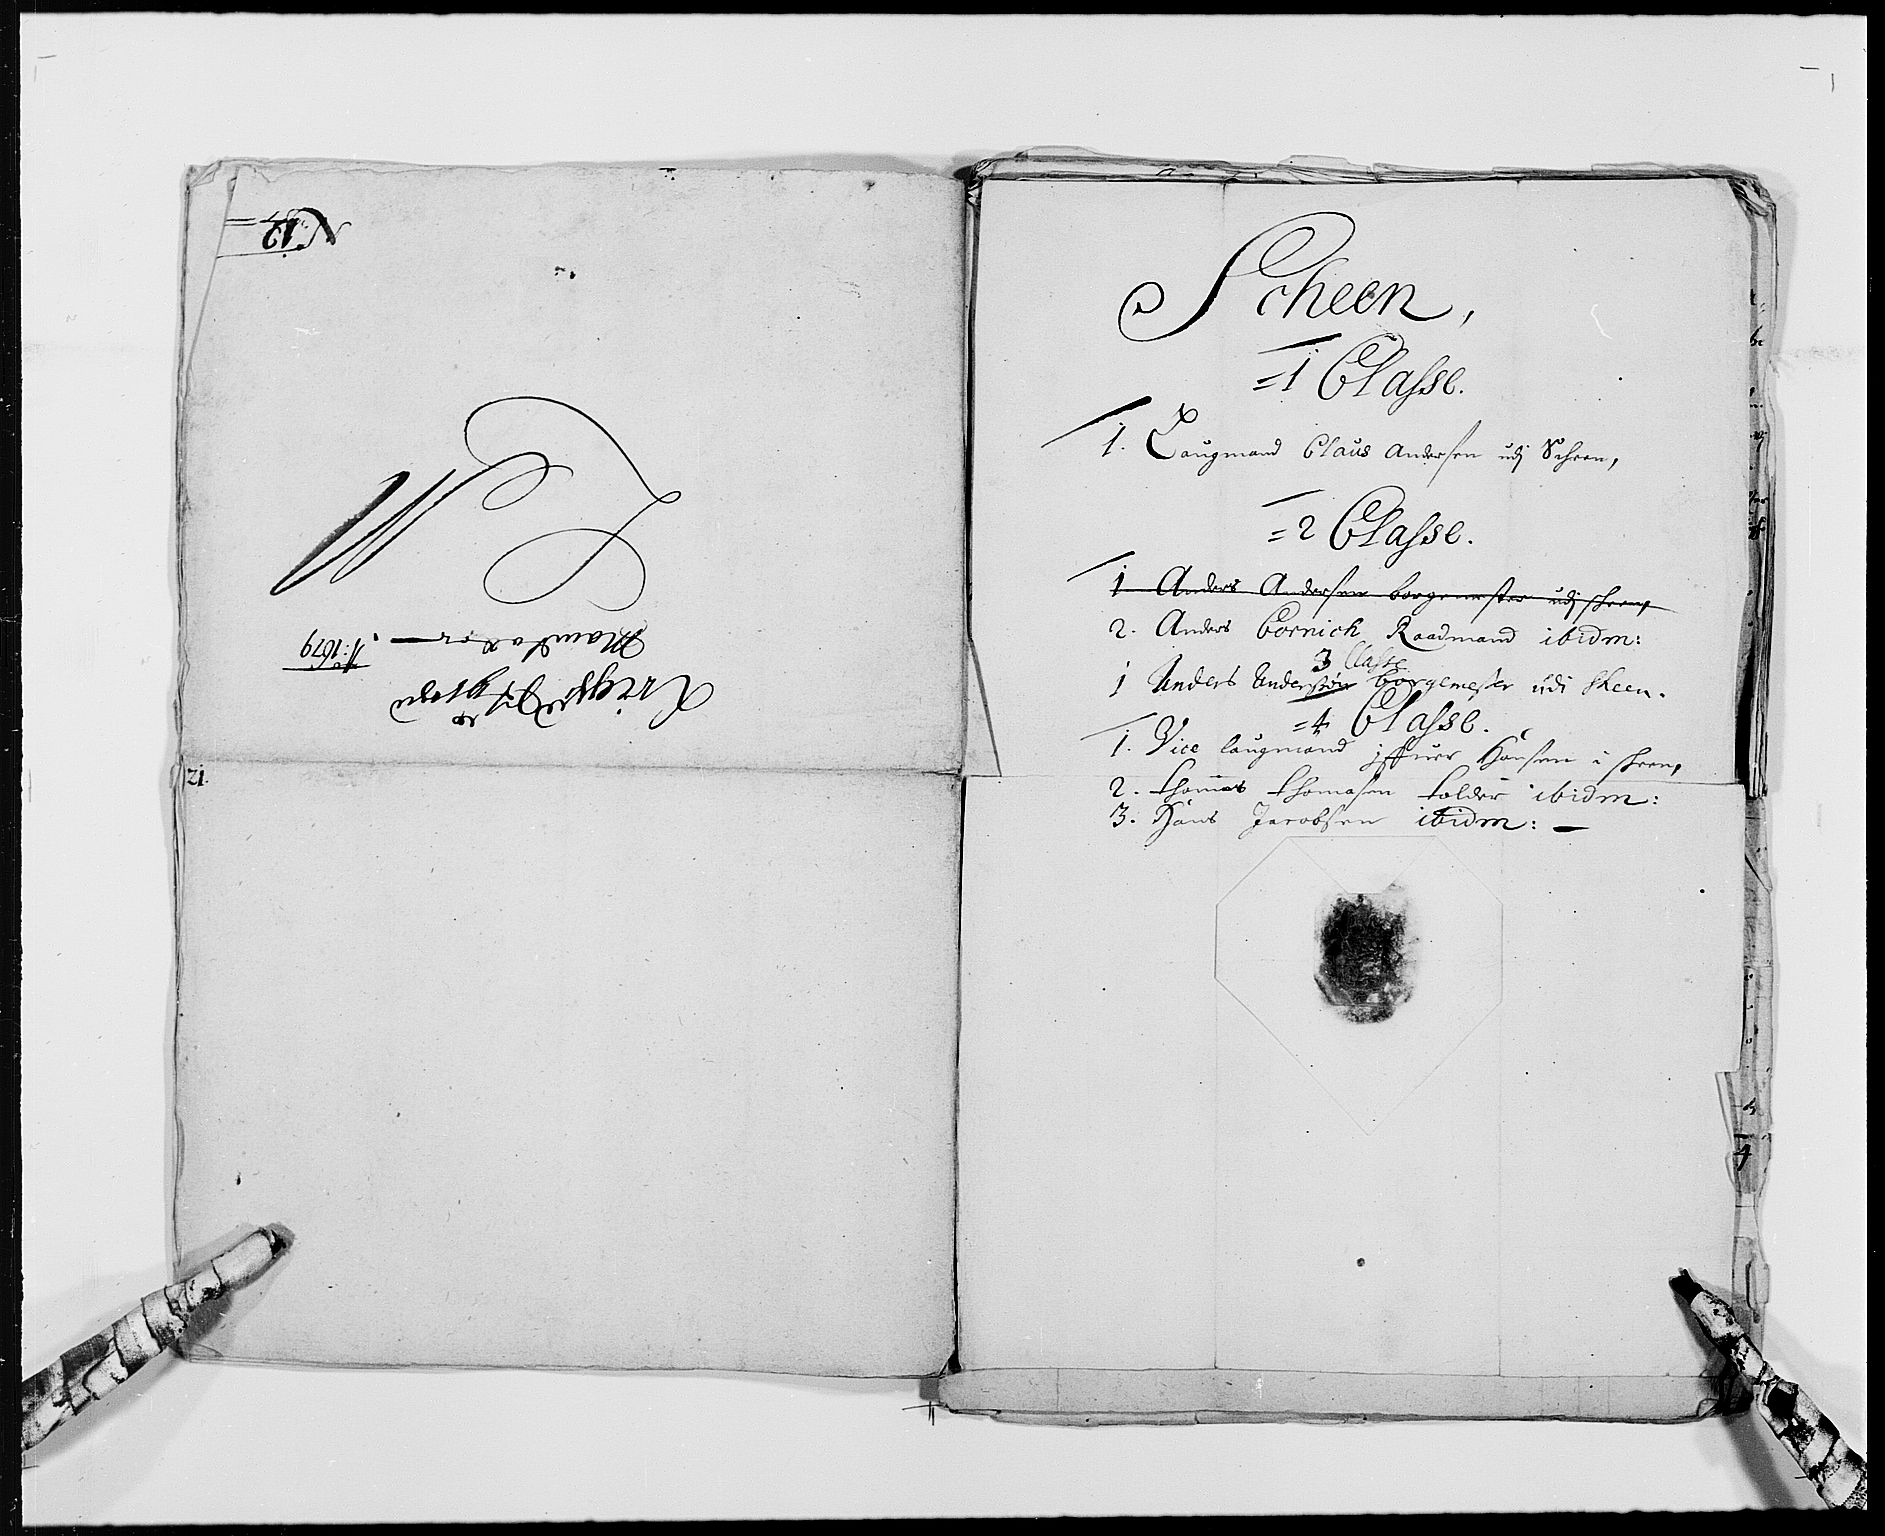 No 12
Krigs
Mandater — Ao: 1679
21.
Scheen,
=1 Classe.
1. Laugmand Claus Andersen udj Scheen,
=2 Classe.
1 Anders Andersen borgemester udj scheen,
2. Anders Cornich Raadmand ibidm:
3 Classe
1 Anders Andersøn Borgemester udi Skeen.
=4 Classe.
1. Vice laugmand jffuer Hansen i scheen,
2. thomas thomasen tolder ibidm:
3. Hans Jacobsen ibidm: —